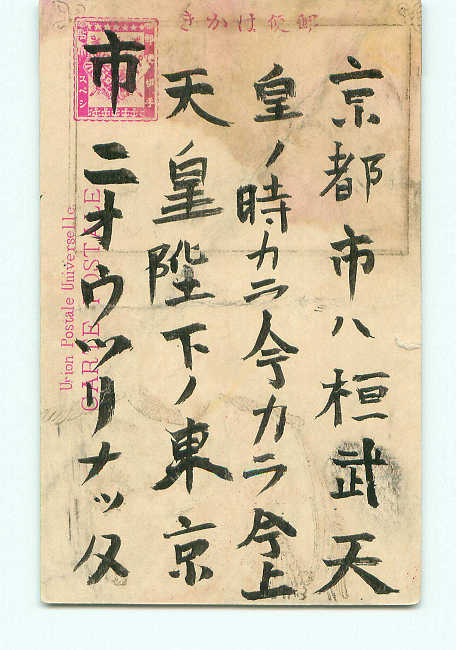 郵便はかき
京都市ハ桓武天
皇ノ時カラ今カラ今上
天皇陛下ノ東京
市ニオウツリナッタ
Union Postale Universelle.
CARTE POSTALE